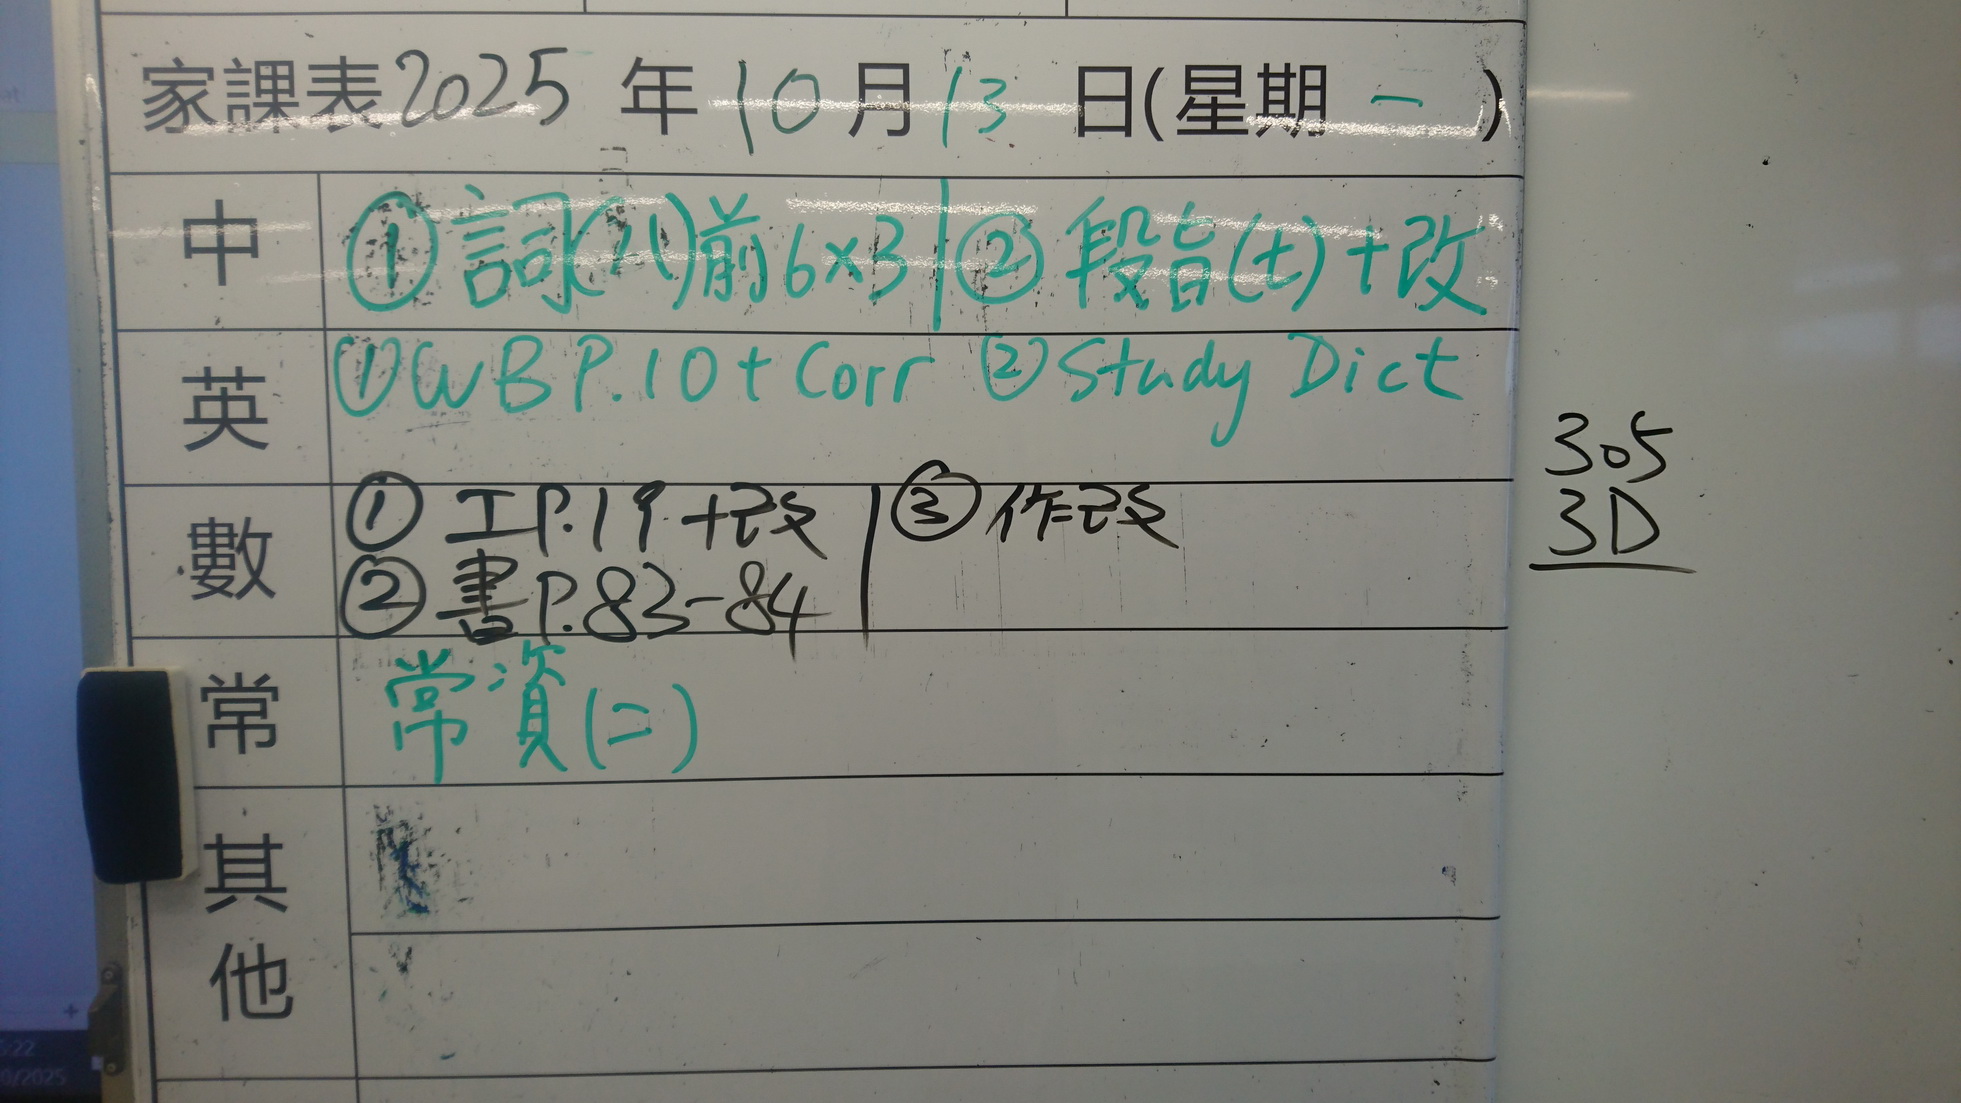 家課表2025 年 10 月 13 日(星期 一 )
中
①詞(八)前6×3 ②段旨(七)+改
英
①WB P.10+Corr ②Study Dict
數
①工P.19+改 ③作改
②書P.83-84
常
常資(二)
其他
305
3D